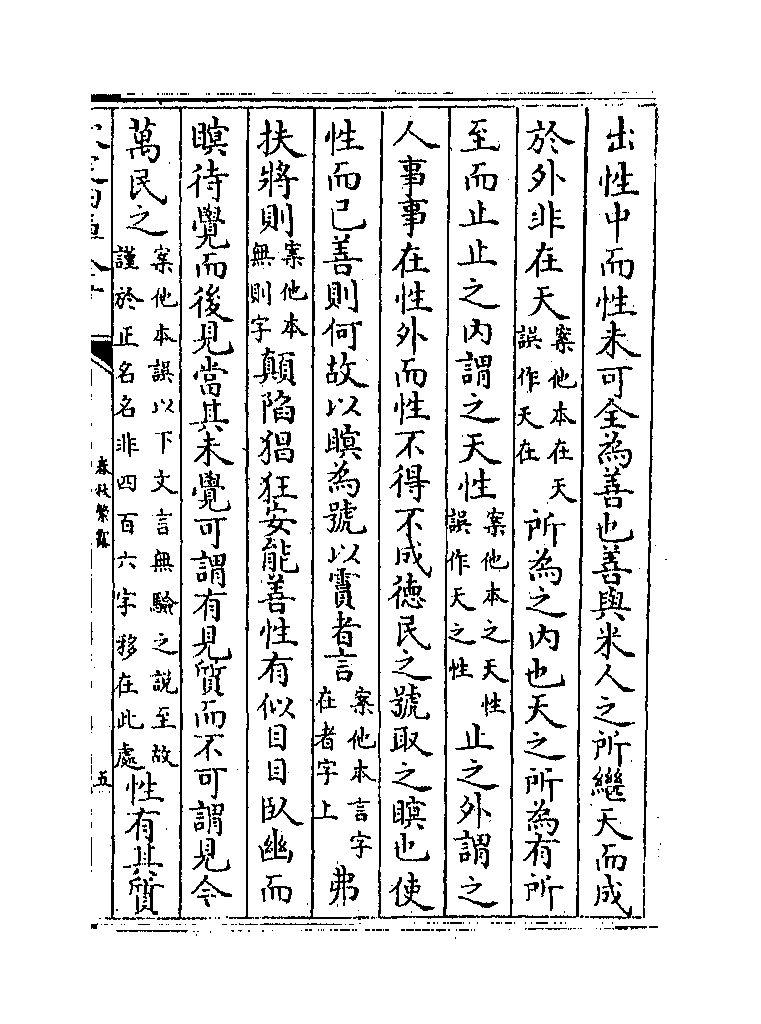 出性中而性未可全為善也善與米人之所繼天而成
於外非在天案他本在天誤作天在所為之內也天之所為有所
至而止止之內謂之天性案他本之天性誤作天之性止之外謂之
人事事在性外而性不得不成徳民之號取之瞑也使
性而已善則何故以瞑為號以霣者言案他本言字在者字上弗
扶將則案他本無則字顛陷猖狂安能善性有似目目臥幽而
瞑待覺而後見當其未覺可謂有見質而不可謂見今
萬民之案他本誤以下文言無驗之說至故謹於正名名非四百六字移在此處性有其質
春秋繁露
五